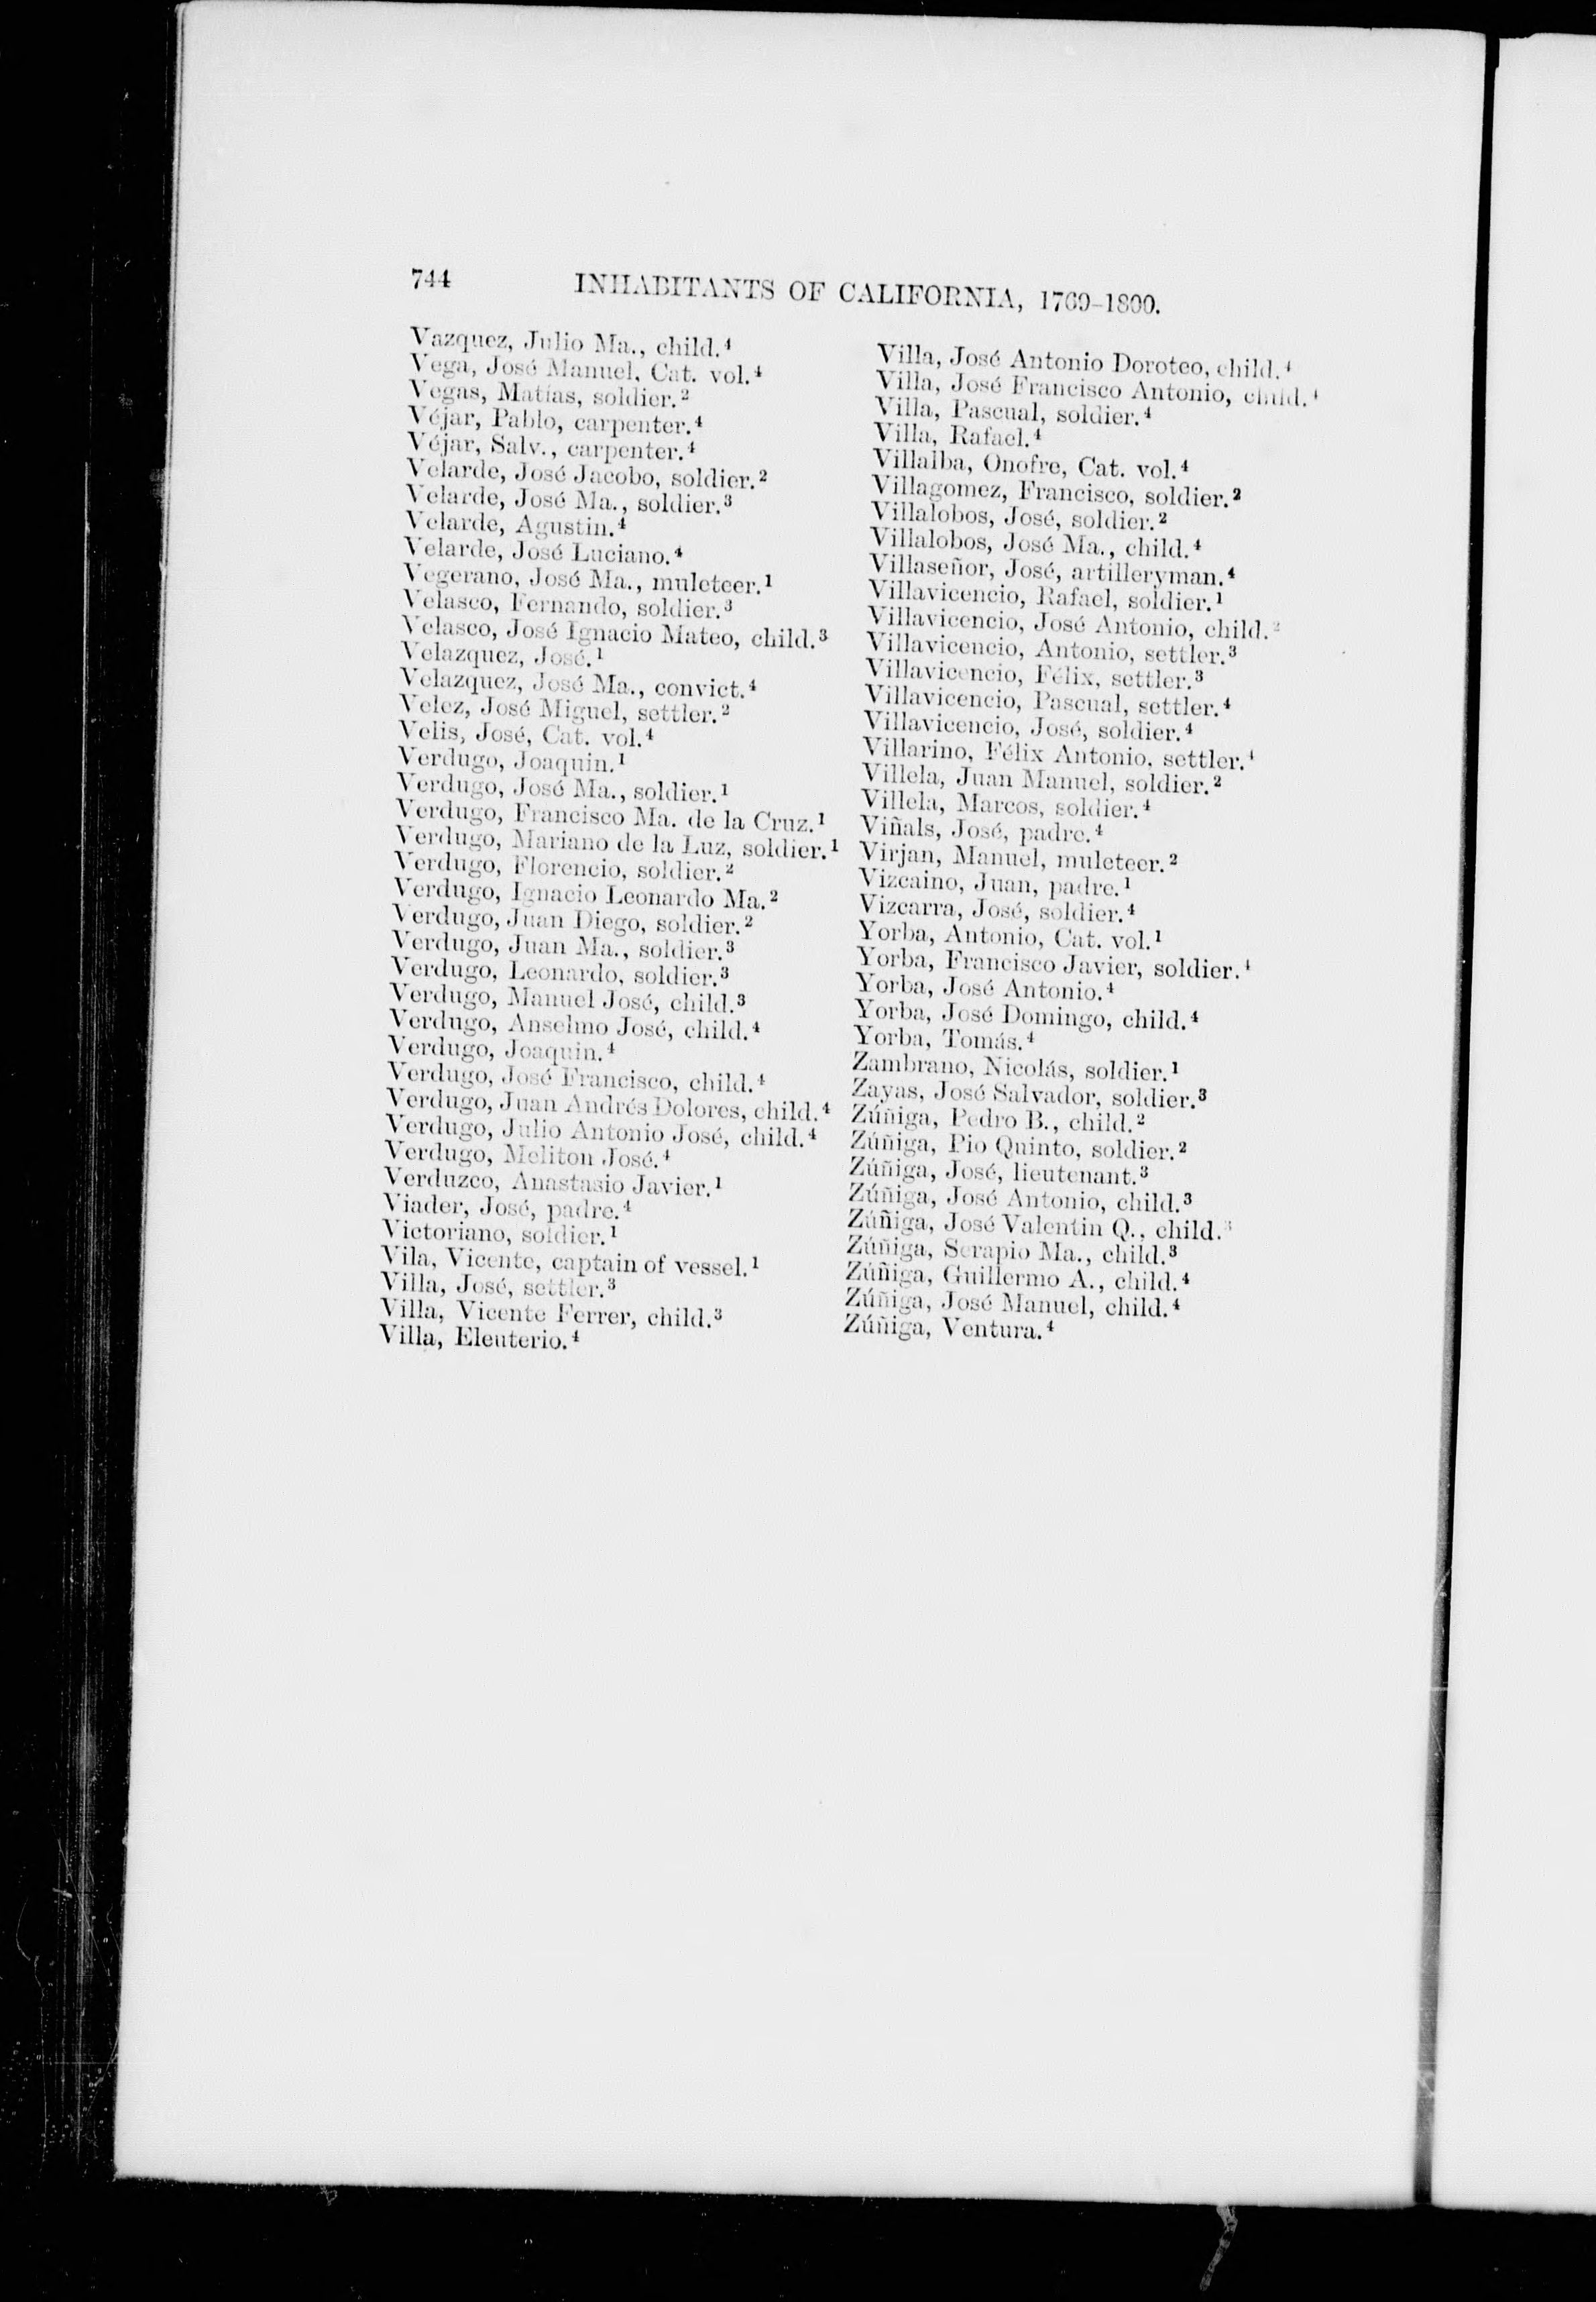 744 INHABITANTS OF CALIFORNIA, 1769-1800.
Vazquez, Julio Ma., child.⁴
Vega, José Manuel, Cat. vol.⁴
Vegas, Matías, soldier.²
Véjar, Pablo, carpenter.⁴
Véjar, Salv., carpenter.⁴
Velarde, José Jacobo, soldier.²
Velarde, José Ma., soldier.³
Velarde, Agustin.⁴
Velarde, José Luciano.⁴
Vegerano, José Ma., muleteer.¹
Velasco, Fernando, soldier.³
Velasco, José Ignacio Mateo, child.³
Velazquez, José.¹
Velazquez, José Ma., convict.⁴
Velez, José Miguel, settler.²
Velis, José, Cat. vol.⁴
Verdugo, Joaquin.¹
Verdugo, José Ma., soldier.¹
Verdugo, Francisco Ma. de la Cruz.¹
Verdugo, Mariano de la Luz, soldier.¹
Verdugo, Florencio, soldier.²
Verdugo, Ignacio Leonardo Ma.²
Verdugo, Juan Diego, soldier.²
Verdugo, Juan Ma., soldier.³
Verdugo, Leonardo, soldier.³
Verdugo, Manuel José, child.³
Verdugo, Anselmo José, child.⁴
Verdugo, Joaquin.⁴
Verdugo, José Francisco, child.⁴
Verdugo, Juan Andrés Dolores, child.⁴
Verdugo, Julio Antonio José, child.⁴
Verdugo, Meliton José.⁴
Verduzco, Anastasio Javier.¹
Viader, José, padre.⁴
Victoriano, soldier.¹
Vila, Vicente, captain of vessel.¹
Villa, José, settler.³
Villa, Vicente Ferrer, child.³
Villa, Eleuterio.⁴
Villa, José Antonio Doroteo, child.⁴
Villa, José Francisco Antonio, child.⁴
Villa, Pascual, soldier.⁴
Villa, Rafael.⁴
Villalba, Onofre, Cat. vol.⁴
Villagomez, Francisco, soldier.²
Villalobos, José, soldier.²
Villalobos, José Ma., child.⁴
Villaseñor, José, artilleryman.⁴
Villavicencio, Rafael, soldier.¹
Villavicencio, José Antonio, child.²
Villavicencio, Antonio, settler.³
Villavicencio, Félix, settler.³
Villavicencio, Pascual, settler.⁴
Villavicencio, José, soldier.⁴
Villarino, Félix Antonio, settler.⁴
Villela, Juan Manuel, soldier.²
Villela, Marcos, soldier.⁴
Viñals, José, padre.⁴
Virjan, Manuel, muleteer.²
Vizcaino, Juan, padre.¹
Vizcarra, José, soldier.⁴
Yorba, Antonio, Cat. vol.¹
Yorba, Francisco Javier, soldier.⁴
Yorba, José Antonio.⁴
Yorba, José Domingo, child.⁴
Yorba, Tomás.⁴
Zambrano, Nicolás, soldier.¹
Zayas, José Salvador, soldier.³
Zúñiga, Pedro B., child.²
Zúñiga, Pio Quinto, soldier.²
Zúñiga, José, lieutenant.³
Zúñiga, José Antonio, child.³
Zúñiga, José Valentin Q., child.³
Zúñiga, Serapio Ma., child.³
Zúñiga, Guillermo A., child.⁴
Zúñiga, José Manuel, child.⁴
Zúñiga, Ventura.⁴